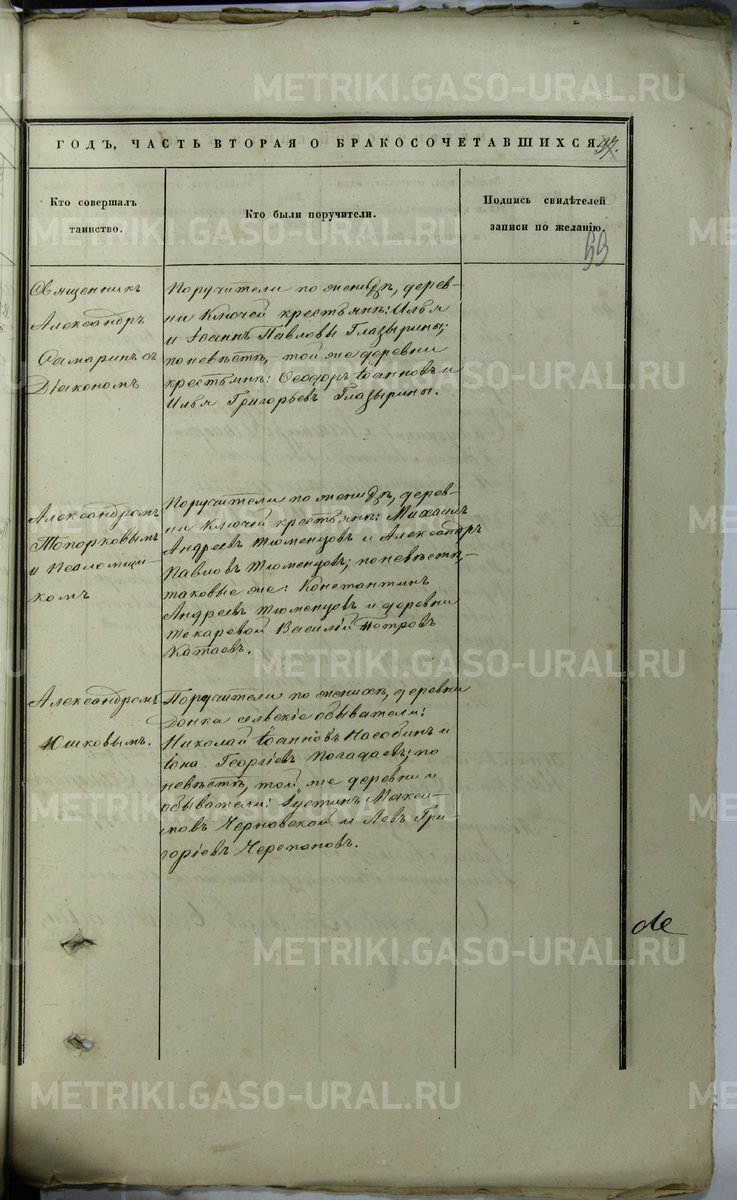 ГОДЪ, ЧАСТЬ ВТОРАЯ О БРАКОСОЧЕТАВШИХСЯ.
97.
Кто совершалъ
таинство.
Кто были поручители.
Подпись свидѣтелей
записи по желанію.
53
Священникъ
Александръ
Самаринъ съ
Діакономъ
Поручители по женихѣ, дерев-
ни Ключей крестьяне: Илья
и Іоаннъ Павловы Глазырины;
по невѣстѣ, - той же деревни
крестьяне: Ѳеодоръ Іоанновъ и
Илья Григорьевъ Глазырины.
Александромъ
Топорковымъ
и Псаломщи-
комъ
Поручители по женихѣ, дерев-
ни Ключей крестьяне: Михаилъ
Андреевъ Тюменцовъ и Александръ
Павловъ Тюменцовъ; по невѣстѣ, -
таковые же: Константинъ
Андреевъ Тюменцовъ и деревни
Токаревой Василій Петровъ
Катаевъ.
Александромъ
Юшковымъ.
Поручители по женихѣ, деревни
сельскіе обыватели:
Николай Іоанновъ и
Іона Георгіевъ Погадаевъ; по
невѣстѣ, той же деревни и
обыватели: Іустинъ Макси-
мовъ Чернавской и Левъ Гри-
горіевъ Черепановъ.
METRIKI.GASO-URAL.RU